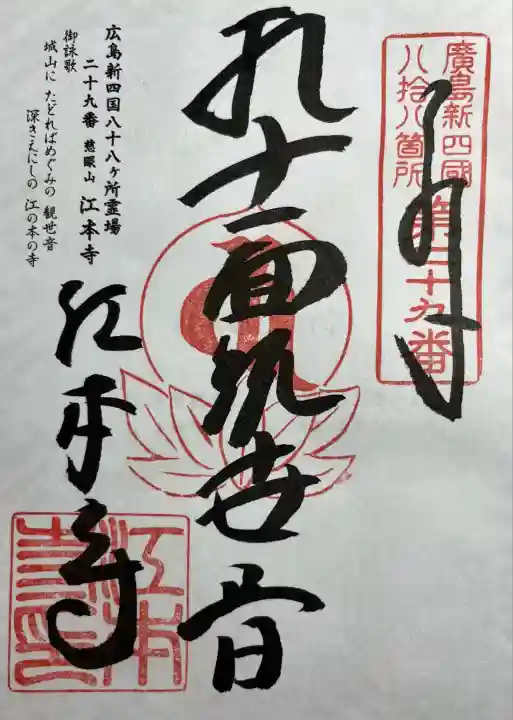 廣島新四國
八拾八箇所
第二十九番
奉拝
十一面観世音
広島新四国八十八ヶ所霊場
二十九番 慈眼山 江本寺
御詠歌
城山に たどればめぐみの 観世音
深きえにしの 江の本の寺
江本寺
江本